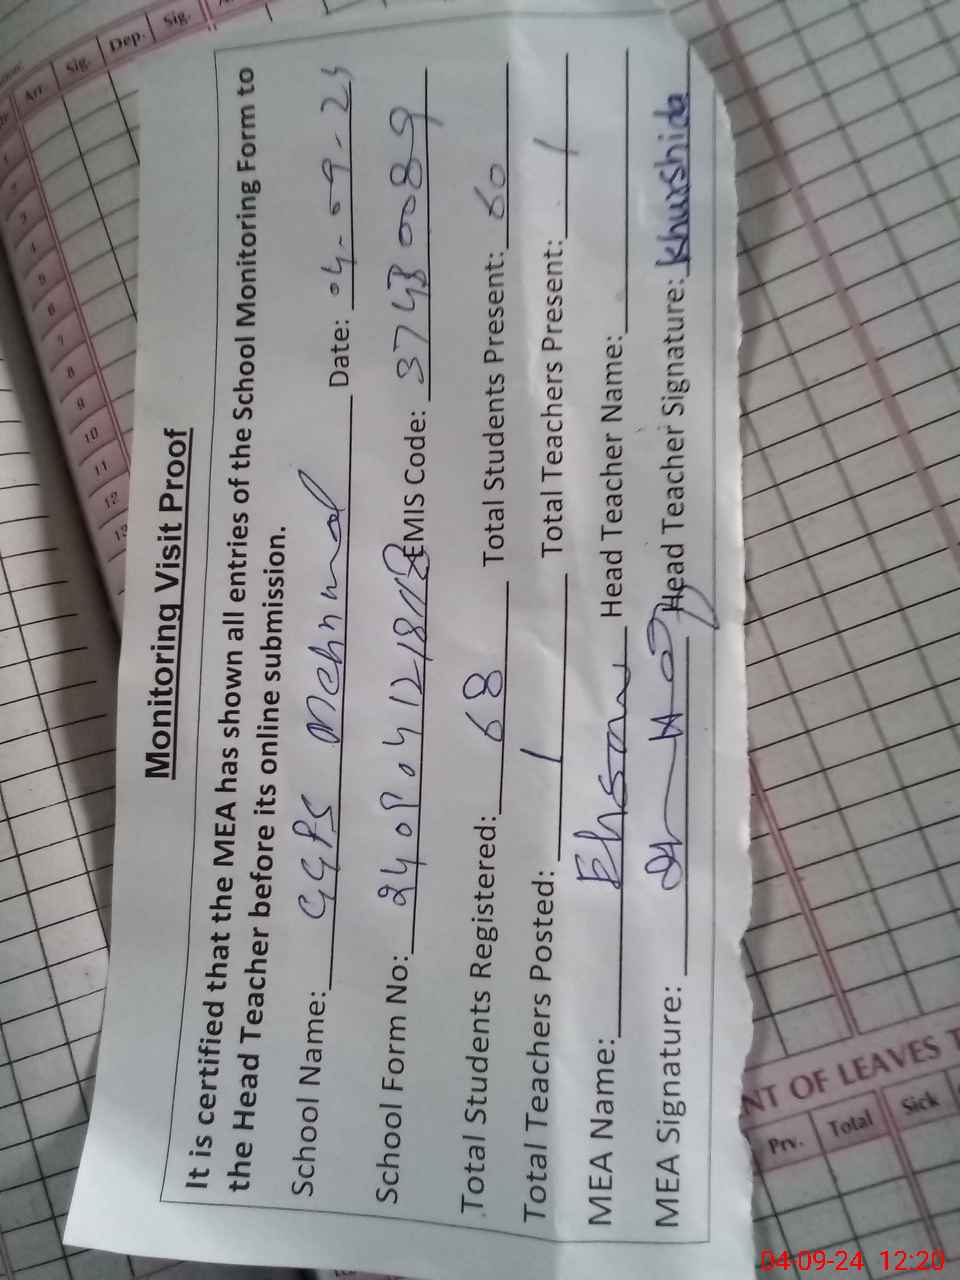 Monitoring Visit Proof
It is certified that the MEA has shown all entries of the School Monitoring Form to
the Head Teacher before its online submission.
School Name: GGPS Mehnmad Date: 04-09-24
School Form No: EMIS Code: 37430089
Total Students Registered: 68 Total Students Present: 60
Total Teachers Posted: 1 Total Teachers Present: 1
MEA Name: Ehsan Head Teacher Name:
MEA Signature: Head Teacher Signature: Khurshida
Arr.
Sig.
Dep.
Sig.
1
2
3
4
5
6
7
8
9
10
11
12
13
NT OF LEAVES T
Prv.
Total
Sick
04-09-24 12:20